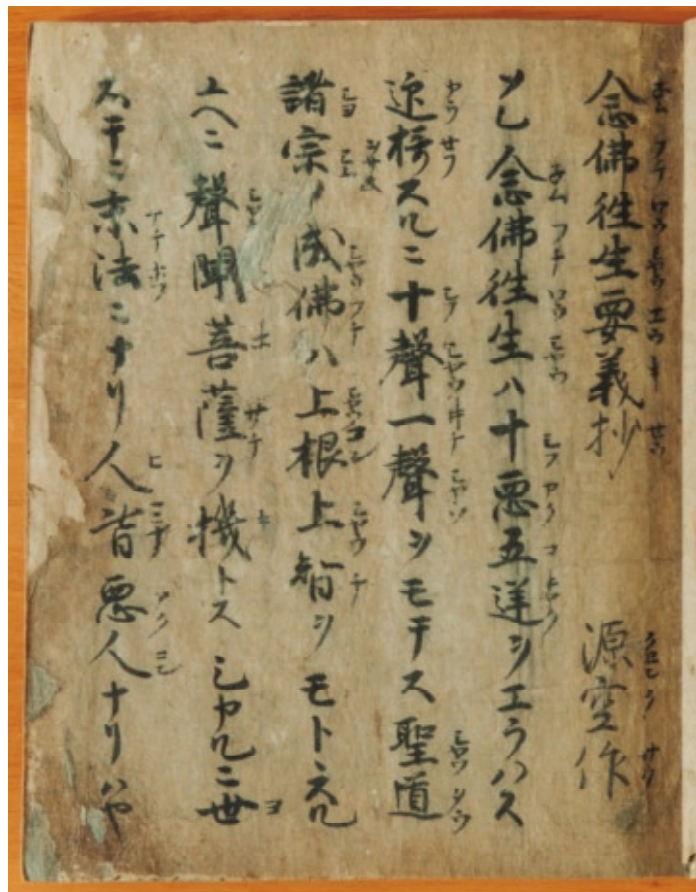 念佛徃生要義抄 源空作
ソレ念佛徃生ハ十悪五逆ヲエラハス
迎摂スルニ十聲一聲ヲモテス聖道
諸宗ノ成佛ハ上根上智ヲモトヽスル
ユヘニ聲聞菩薩ヲ機トスシカルニ世
ステニ末法ニナリ人皆悪人ナリハヤ